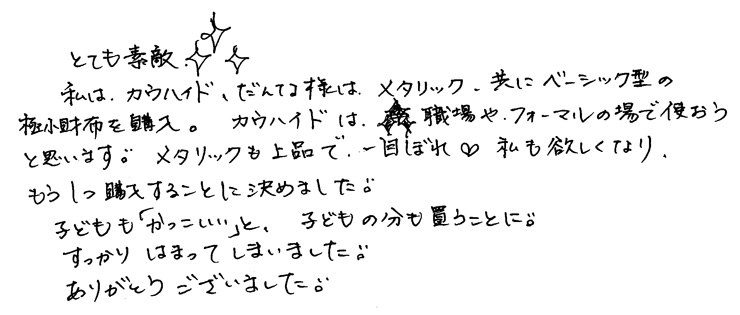 とても素敵
私は、カウハイド、だんな様は、メタリック、共にベーシック型の
極小財布を購入。カウハイドは、職場や、フォーマルの場で使おう
と思います。メタリックも上品で、一目ぼれ♡ 私も欲しくなり、
もう1つ購入することに決めました。
子どもも「かっこいい」と、子どもの分も買うことに。
すっかりはまってしまいました。
ありがとうございました。